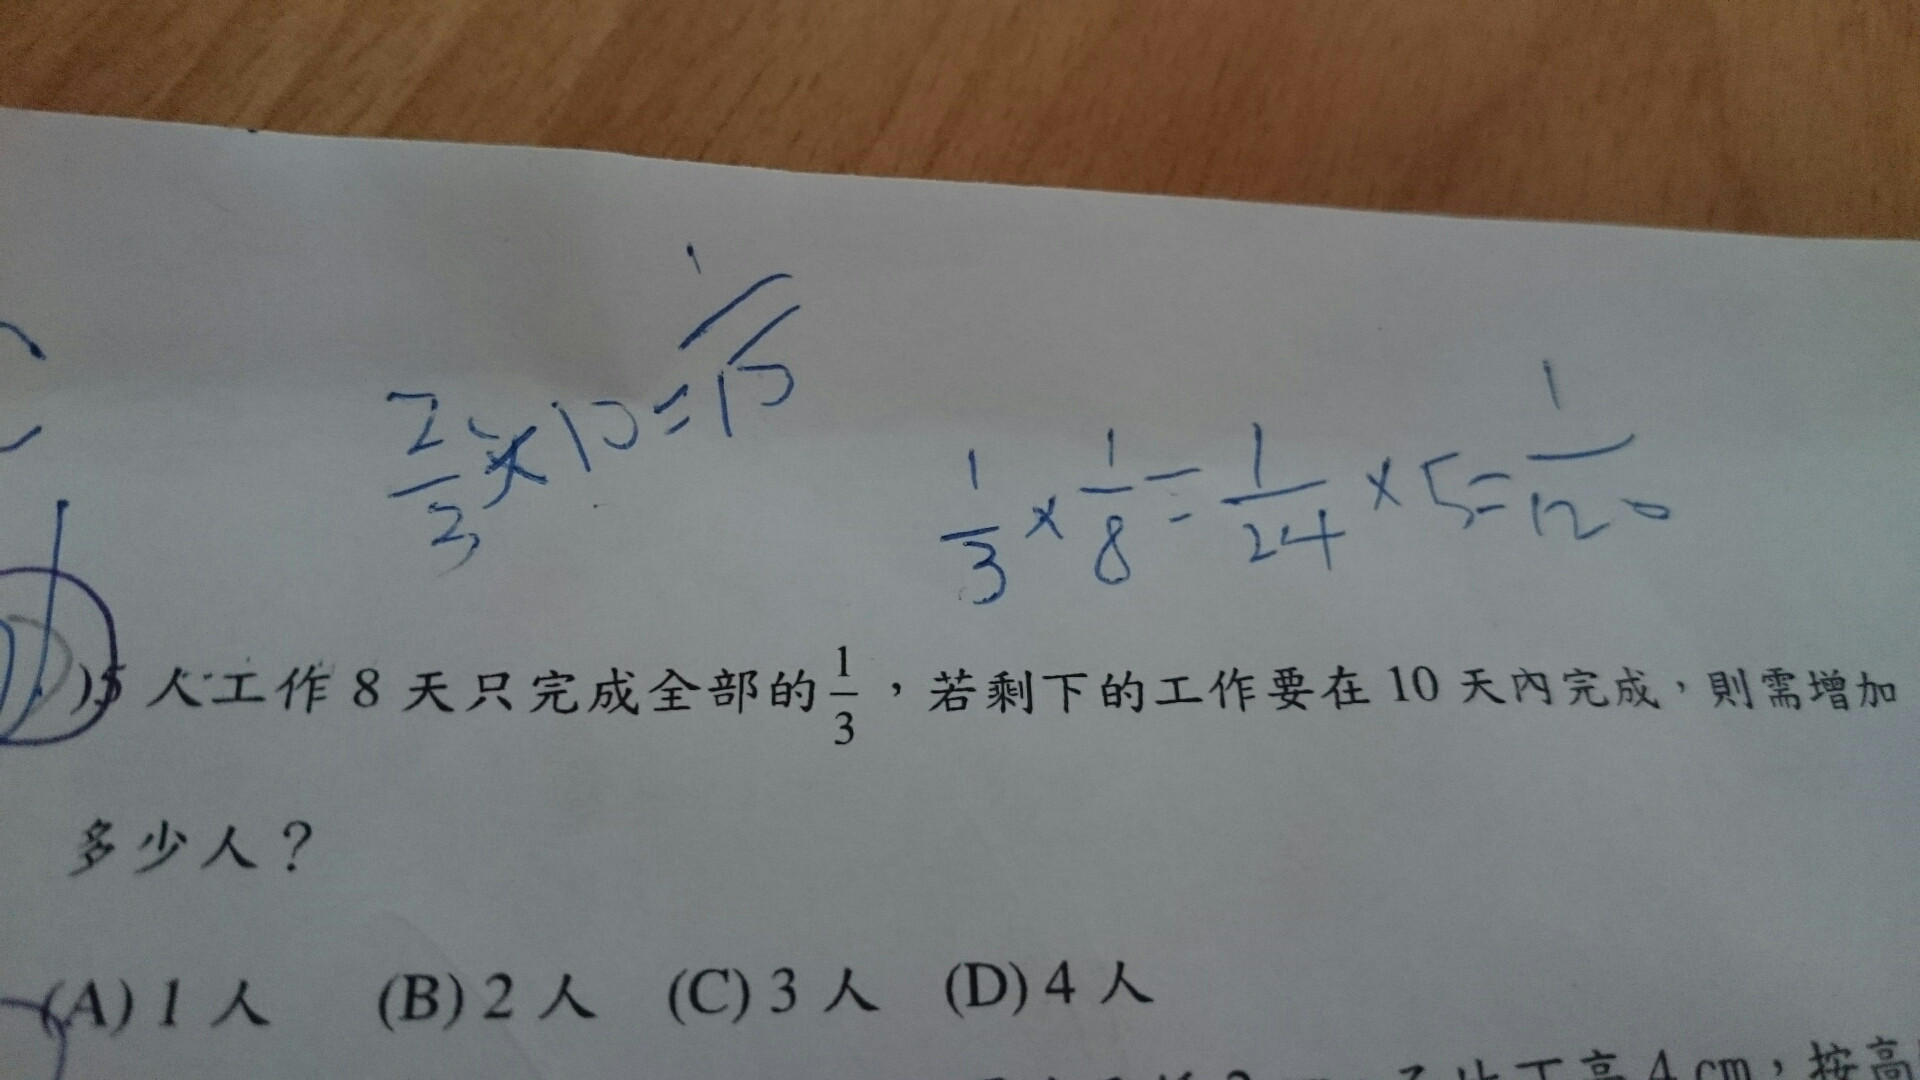 1/3 × 1/8 = 1/24 × 5 = 1/120
)5 人工作 8 天只完成全部的 1/3，若剩下的工作要在 10 天內完成，則需增加
多少人？
(A) 1 人 (B) 2 人 (C) 3 人 (D) 4 人
4 cm，按高